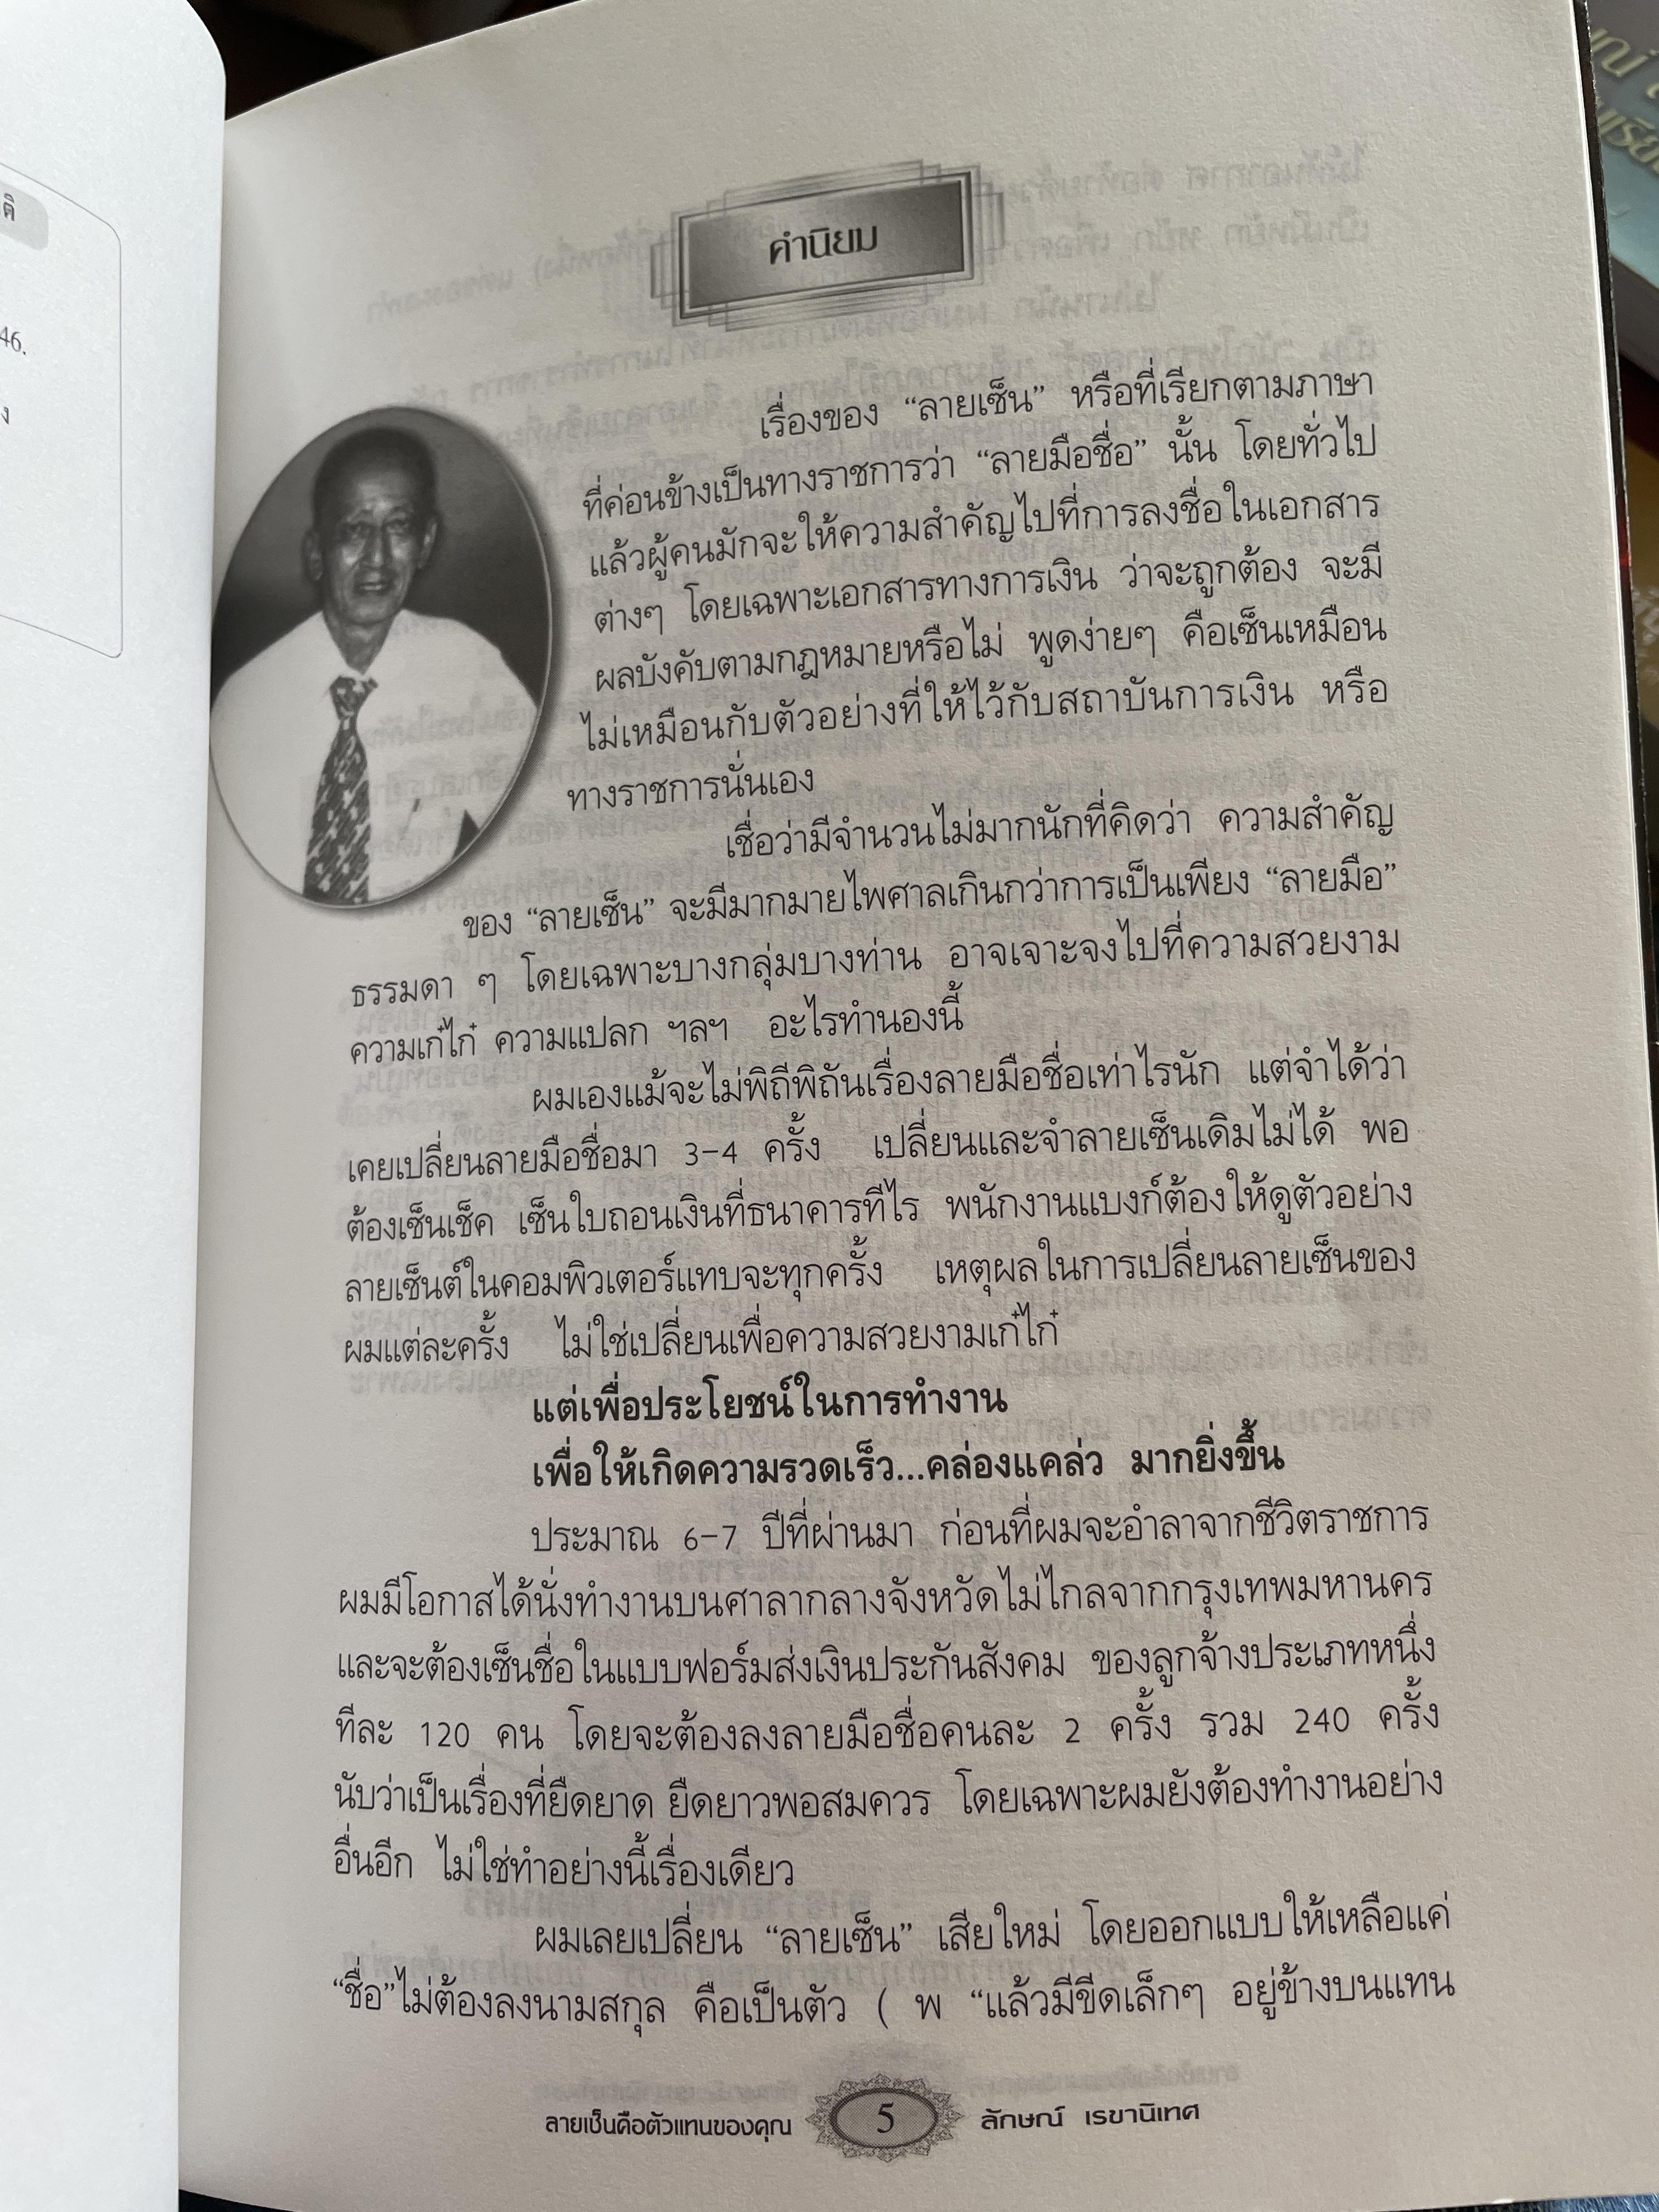 คำนิยม
เรื่องของ “ลายเซ็น” หรือที่เรียกตามภาษา
ที่ค่อนข้างเป็นทางราชการว่า “ลายมือชื่อ” นั้น โดยทั่วไป
แล้วผู้คนมักจะให้ความสำคัญไปที่การลงชื่อในเอกสาร
ต่างๆ โดยเฉพาะเอกสารทางการเงิน ว่าจะถูกต้อง จะมี
ผลบังคับตามกฎหมายหรือไม่ พูดง่ายๆ คือเซ็นเหมือน
ไม่เหมือนกับตัวอย่างที่ให้ไว้กับสถาบันการเงิน หรือ
ทางราชการนั่นเอง
เชื่อว่ามีจำนวนไม่มากนักที่คิดว่า ความสำคัญ
ของ “ลายเซ็น” จะมีมากมายไพศาลเกินกว่าการเป็นเพียง “ลายมือ”
ธรรมดา ๆ โดยเฉพาะบางกลุ่มบางท่าน อาจเจาะจงไปที่ความสวยงาม
ความเก๋ไก๋ ความแปลก ฯลฯ อะไรทำนองนี้
ผมเองแม้จะไม่พิถีพิถันเรื่องลายมือชื่อเท่าไรนัก แต่จำได้ว่า
เคยเปลี่ยนลายมือชื่อมา 3-4 ครั้ง เปลี่ยนและจำลายเซ็นเดิมไม่ได้ พอ
ต้องเซ็นเช็ค เซ็นใบถอนเงินที่ธนาคารทีไร พนักงานแบงก์ต้องให้ดูตัวอย่าง
ลายเซ็นต์ในคอมพิวเตอร์แทบจะทุกครั้ง เหตุผลในการเปลี่ยนลายเซ็นของ
ผมแต่ละครั้ง ไม่ใช่เปลี่ยนเพื่อความสวยงามเก๋ไก๋
แต่เพื่อประโยชน์ในการทำงาน
เพื่อให้เกิดความรวดเร็ว...คล่องแคล่ว มากยิ่งขึ้น
ประมาณ 6-7 ปีที่ผ่านมา ก่อนที่ผมจะอำลาจากชีวิตราชการ
ผมมีโอกาสได้นั่งทำงานบนศาลากลางจังหวัดไม่ไกลจากกรุงเทพมหานคร
และจะต้องเซ็นชื่อในแบบฟอร์มส่งเงินประกันสังคม ของลูกจ้างประเภทหนึ่ง
ทีละ 120 คน โดยจะต้องลงลายมือชื่อคนละ 2 ครั้ง รวม 240 ครั้ง
นับว่าเป็นเรื่องที่ยืดยาด ยืดยาวพอสมควร โดยเฉพาะผมยังต้องทำงานอย่าง
อื่นอีก ไม่ใช่ทำอย่างนี้เรื่องเดียว
ผมเลยเปลี่ยน “ลายเซ็น” เสียใหม่ โดยออกแบบให้เหลือแค่
“ชื่อ”ไม่ต้องลงนามสกุล คือเป็นตัว ( พ “แล้วมีขีดเล็กๆ อยู่ข้างบนแทน
ลายเซ็นคือตัวแทนของคุณ 5 ลักษณ์ เรขานิเทศ
46.